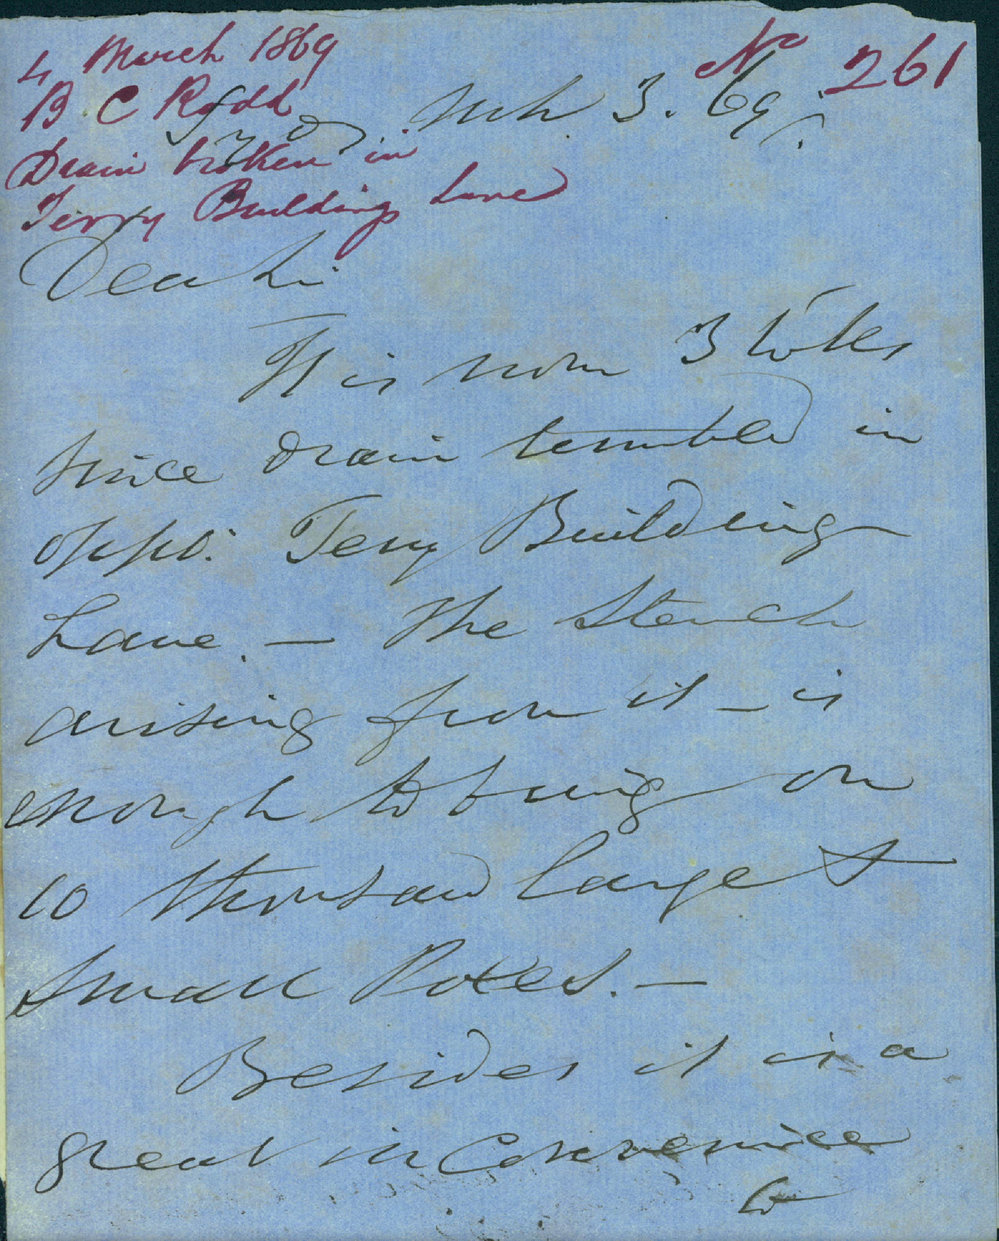 4 March 1869
No 261
B C Rodd
Mch 3. 69.
Drain broken in
Terry Buildings Lane
Dear Sir
It is now 3 Wks
since drain tumbled in
oppo: Terry Building
Lane. — The stench
arising from it — is
enough to bring on
10 thousand large &
small Poxes. —
Besides it is a
great inconvenience
to